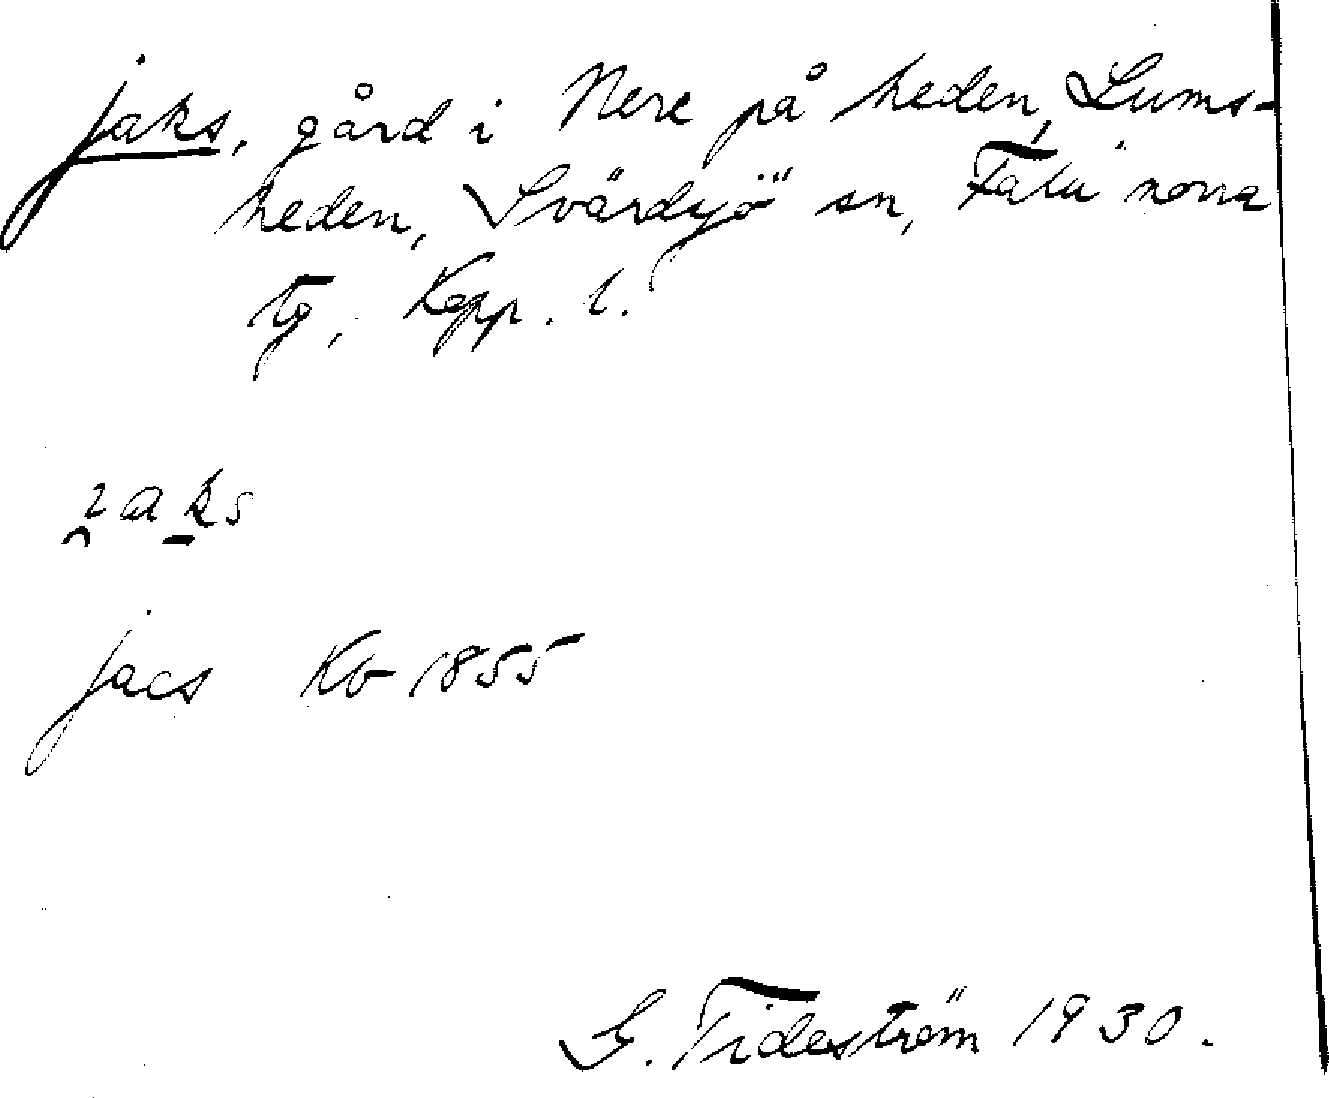 jaks, gård i Nere på heden, Lums-
heden, Svärdsjö sn, Falu norra
tg, Kopp. l.
i̯aks
jacs Kb 1855
G. Tideström 1930.